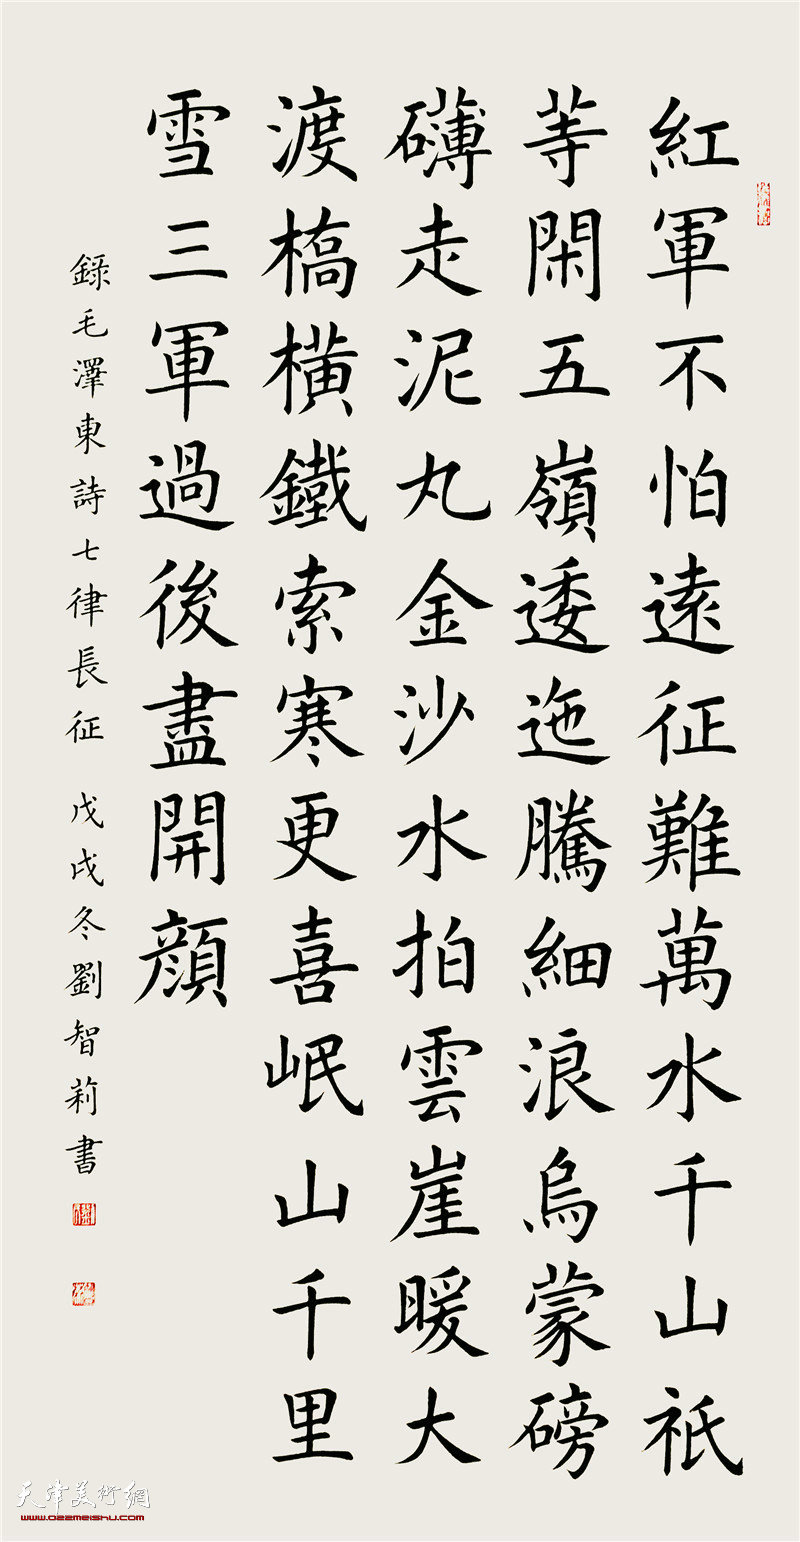 紅軍不怕遠征難萬水千山祇
等閑五嶺逶迤騰細浪烏蒙磅
礴走泥丸金沙水拍雲崖暖大
渡橋橫鐵索寒更喜岷山千里
雪三軍過後盡開顏
錄毛澤東詩七律長征 戊戌冬劉智莉書
天津美術網
www.022meishu.com